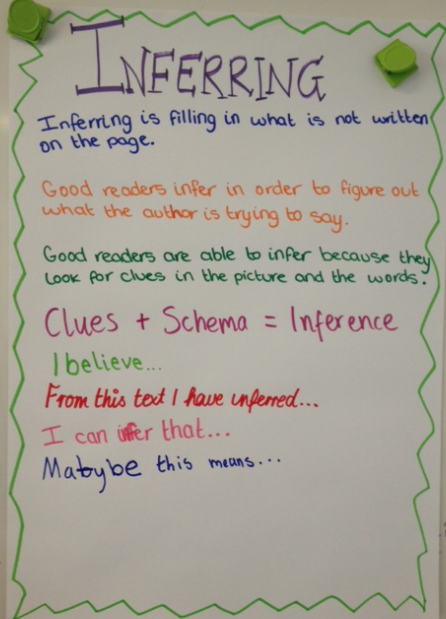 INFERRING
Inferring is filling in what is not written
on the page.
Good readers infer in order to figure out
what the author is trying to say.
Good readers are able to infer because they
look for clues in the picture and the words.
Clues + Schema = Inference
I believe...
From this text I have inferred...
I can infer that...
Maybe this means...